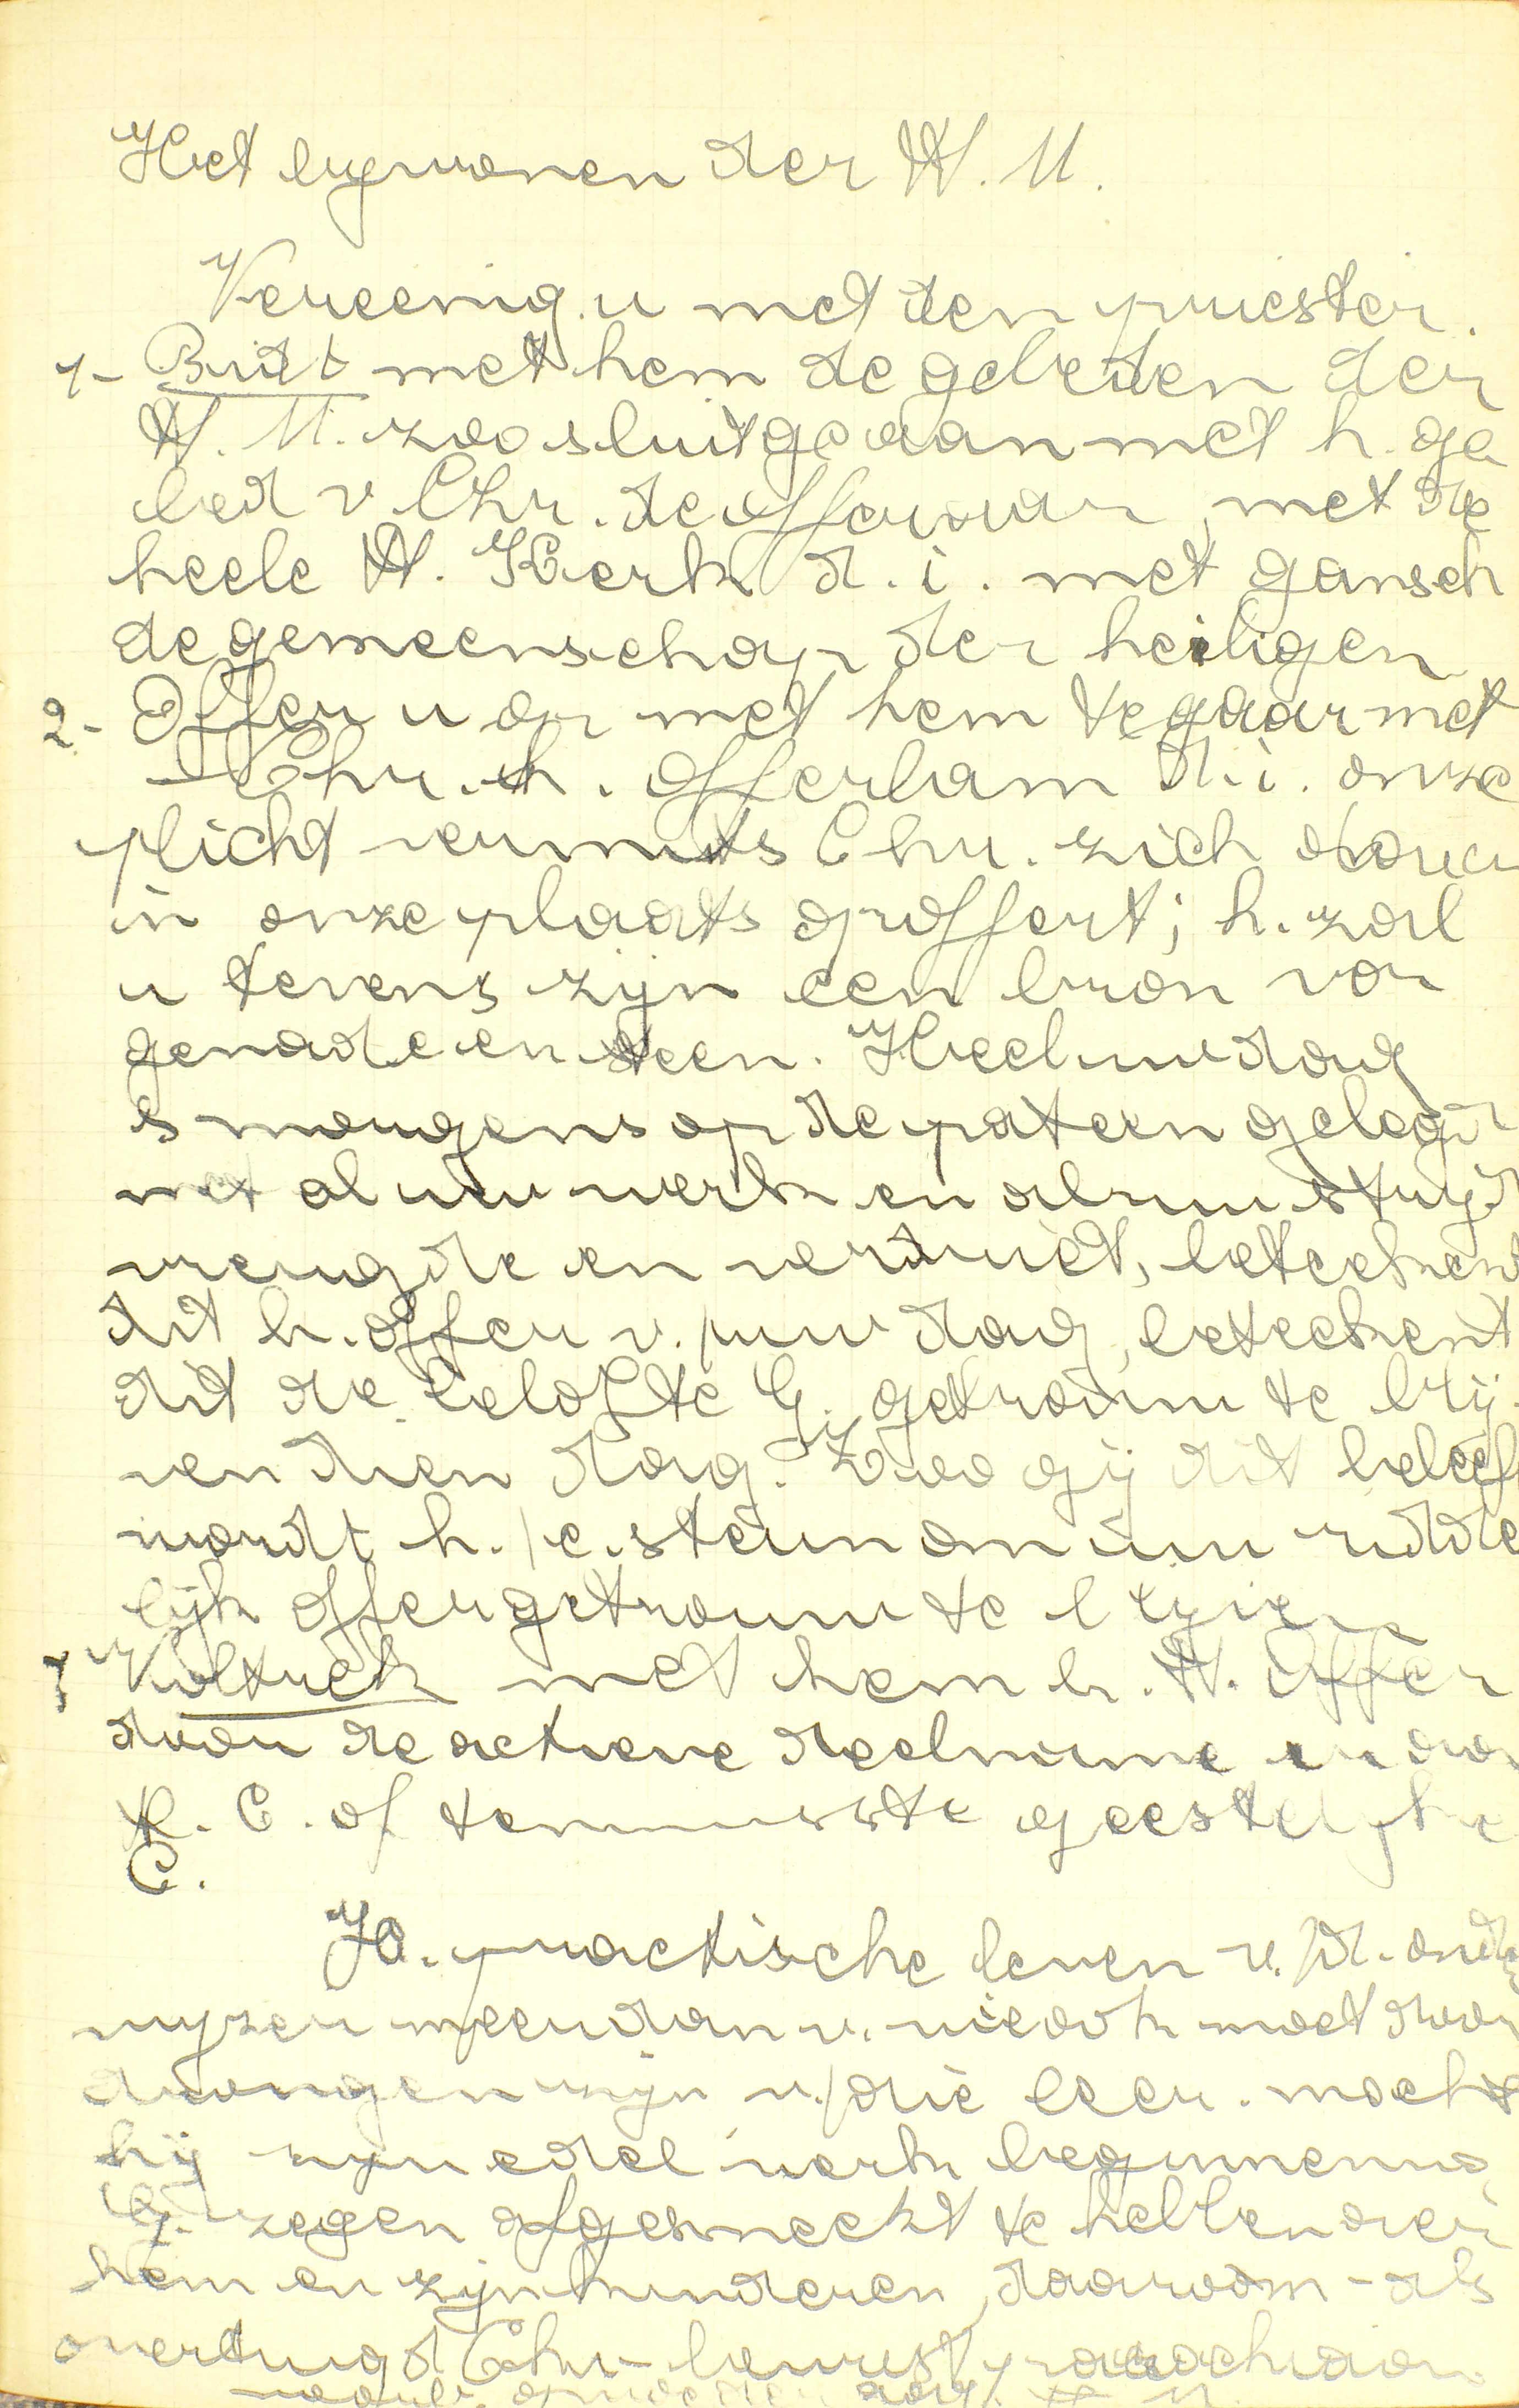 Het bywonen der H. M.
Vereenig u met den priester.
1- Bidt met hem de gebeden der
H. M. zoo sluit ge aan met h. ge
bed v Chr. de offeraar, met de
heele H. Kerk d. i. met gansch
de gemeenschap der heiligen
2- Offer u op met hem tegaar met
Chr. h. offerlam d. i. onze
plicht vermits Chr. zich daar
in onze plaats opoffert; h. zal
u tevens zijn een bron van
genade en steen. Heel uw dag
s morgens op de pateen gelegd
met al uw werk en al uw strijd
vreugde en verdriet, beteekent
dit h. offer v. / uw dag, beteekent
dit de belofte G. getrouw te blij
ven dien dag. Zoo gij dit beleeft
wordt h. / e. steun om uw ridder
lijk offer getrouw te blijven
3 Voltrek met hem h. H. Offer
door de actieve deelname en door
H. C. of tenminste geestelyke
C.
H. practische leven v. / d. onder
wyzer meer dan v. wie ook moet door
drongen zijn v. / die leer. mocht
hij zyn edel werk beginnen na
G. zegen afgesmeekt te hebben over
hem en zijn kinderen, daarom - als
overtuigd Chr. - bewust parochiaan